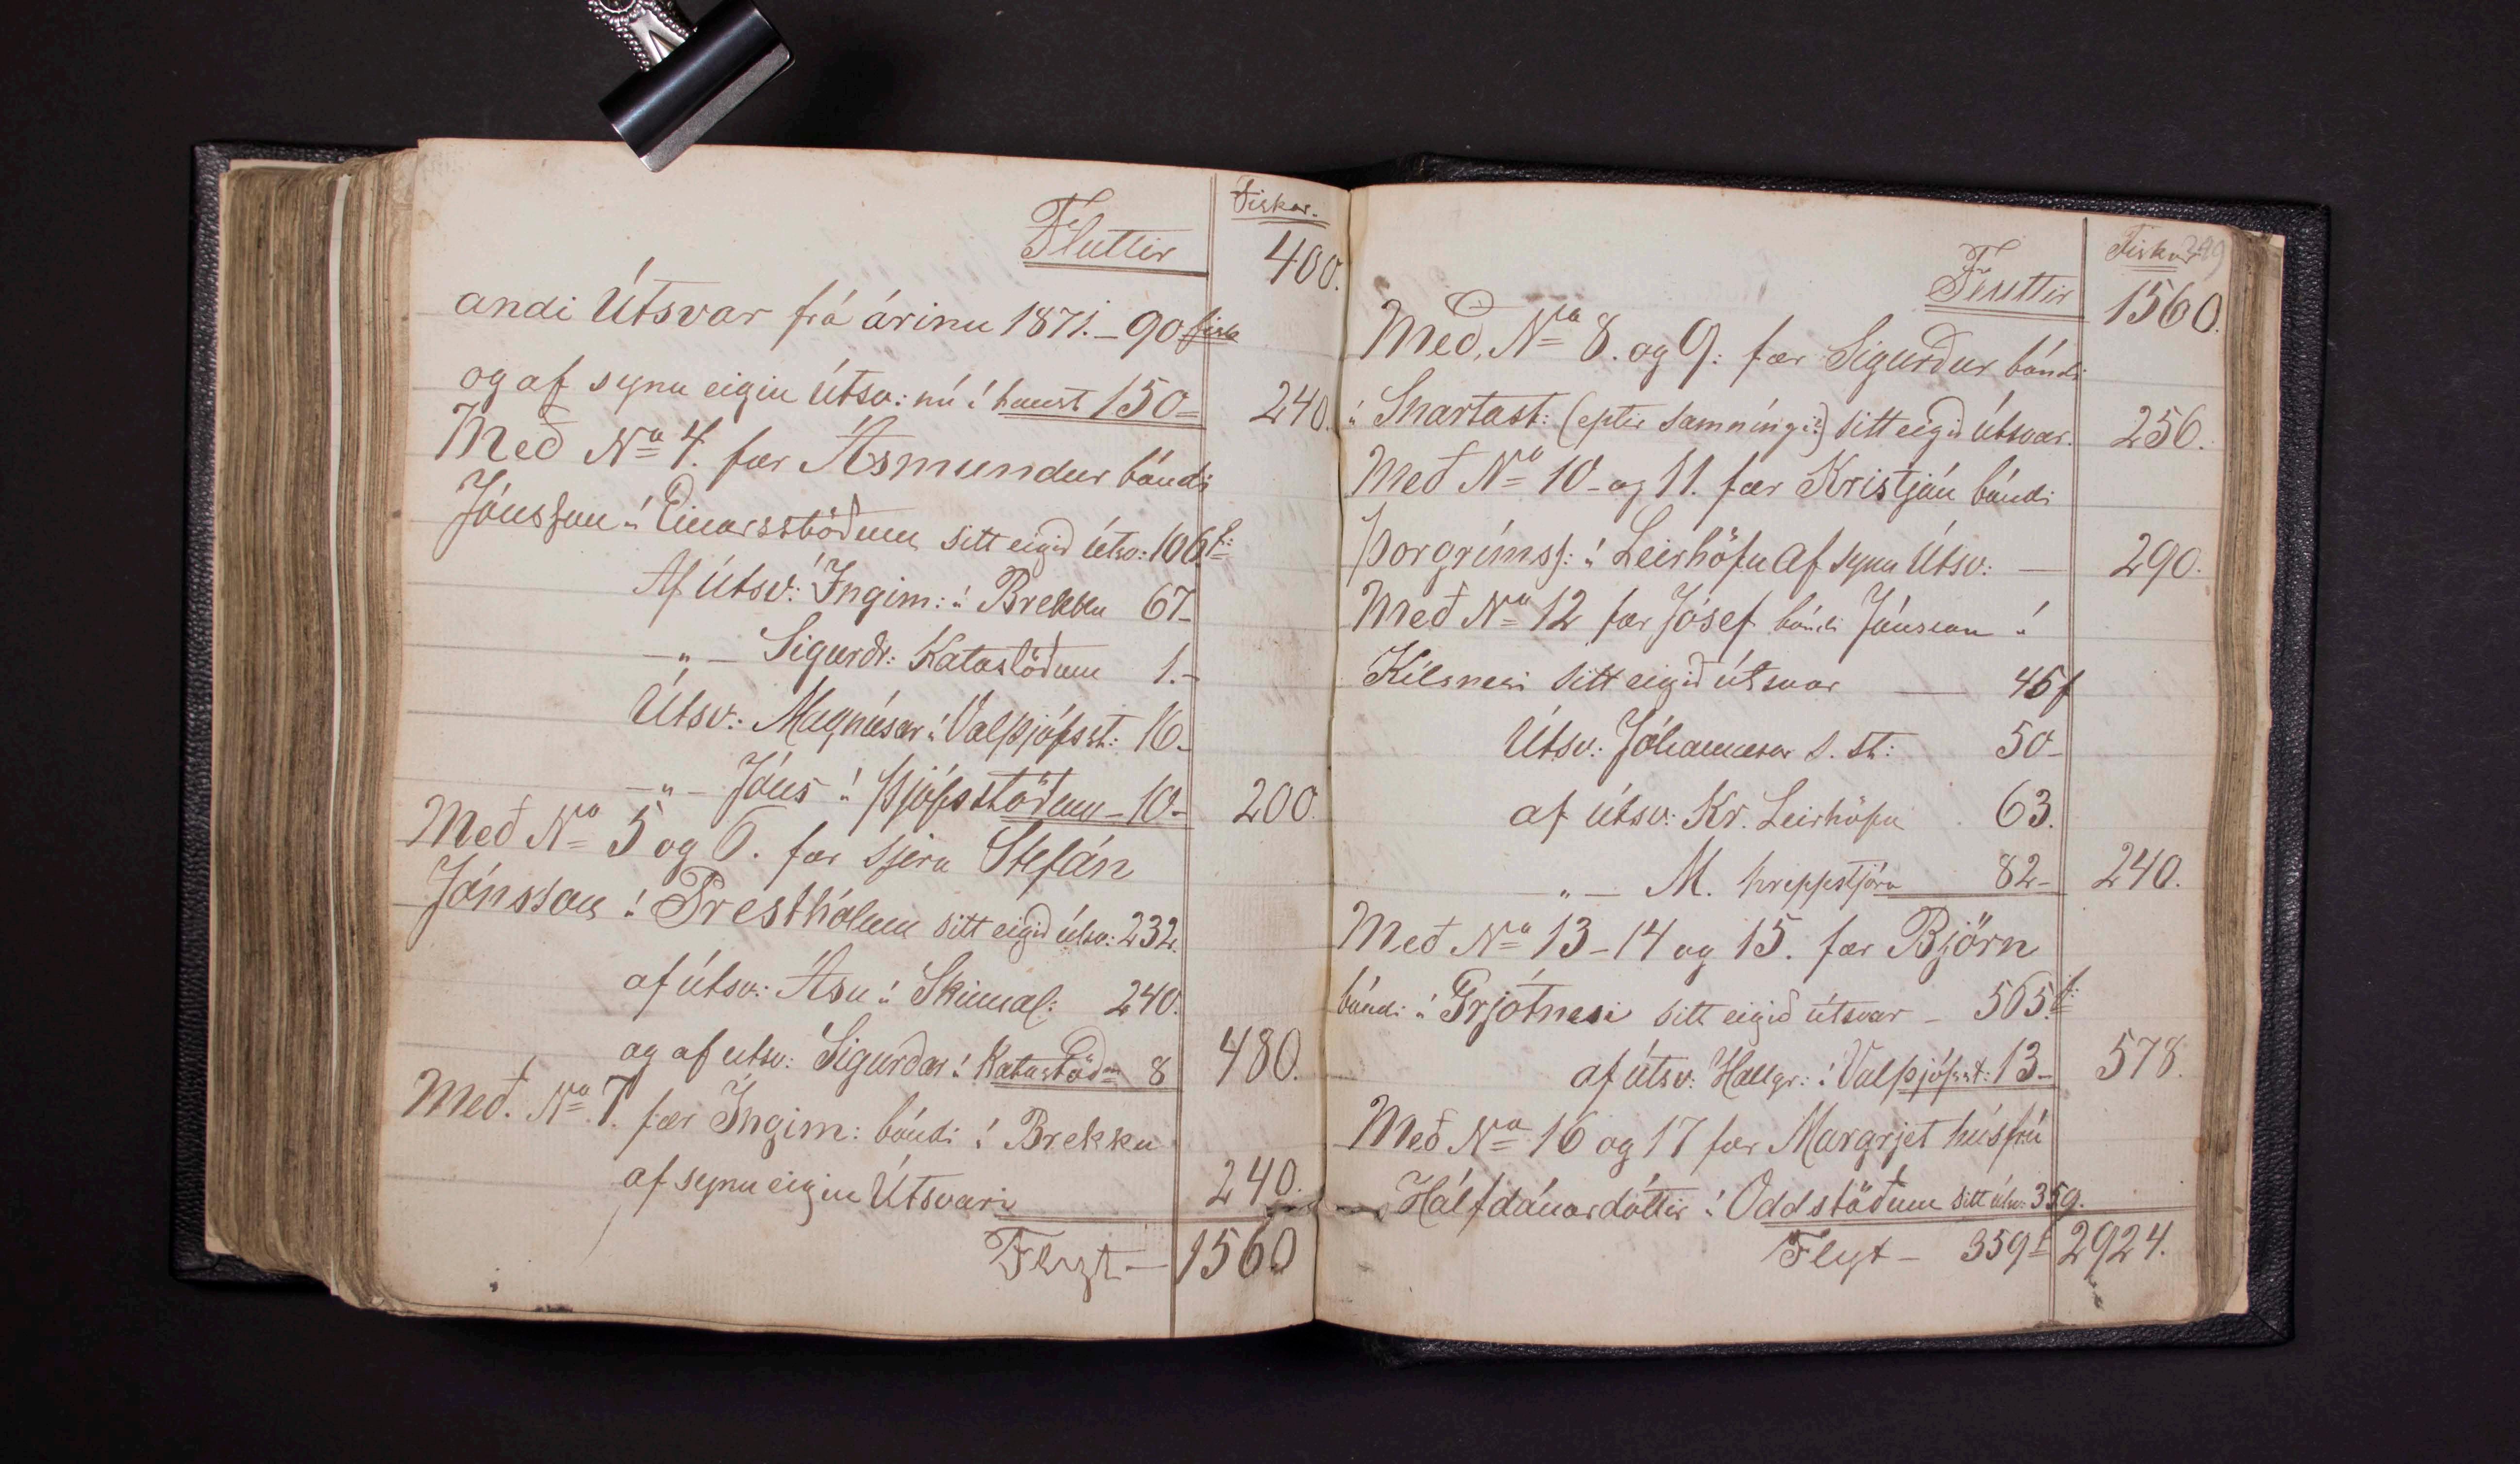 Fiskar.
Fluttir 400.
andi Útsvar frá árinu 1871. – 90 fiska
og af synu eigin útsv: nú í haust 150 = 240.
Með No 4. fær Ásmundur bóndi
Jónsson á Einarsstöðum sitt eigið útsv: 106 f:
Af útsv: Ingim: á Brekku 67 –
– „ – Sigurðr: Katastöðum 1. –
Útsv: Magnúsar á Valþjófsst: 16 –
– „ – Jóns á Þjófsstöðum – 10 – 200.
Með No 5 og 6. fær sjera Stefán
Jónsson á Presthólum sitt eigið útsv: 232.
af útsv: Ásu á Skinnal: 240.
og af utsv: Sigurðar á Katastöðm 8 480.
Með. No 7. fær Ingim: bóndi á Brekku
af synu eigin Útsvari 240.
Flyt – 1560
Fiskar 249
Fluttir 1560.
Með, No 8. og 9: fær Sigurður bóndi
á Snartast: (eptir samníngi:) sitt eigið útsvar. 256.
Með No 10 – og 11. fær Kristján bóndi
Þorgríms: á Leirhöfn af synu Útsv: – 290.
Með No 12 fær Jósef bóndi Jónsson á
Kílsnesi sitt eigið útsvar – 45 f
Útsv: Jóhannesar s. st: 50 –
af útsv: Kr. Leirhöfn 63.
„ – M. hreppstjóra 82 – 240.
Með No 13 – 14 og 15. fær Björn
bóndi á Grjótnesi sitt eigið útsvar – 565 f:
af útsv: Hallgr: á Valþjófsst: 13 – 578.
Með No 16 og 17 fær Margrjet húsfrú
Hálfdánardóttir á Oddstöðum sitt útsv: 359.
Flyt – 359 f 2924.